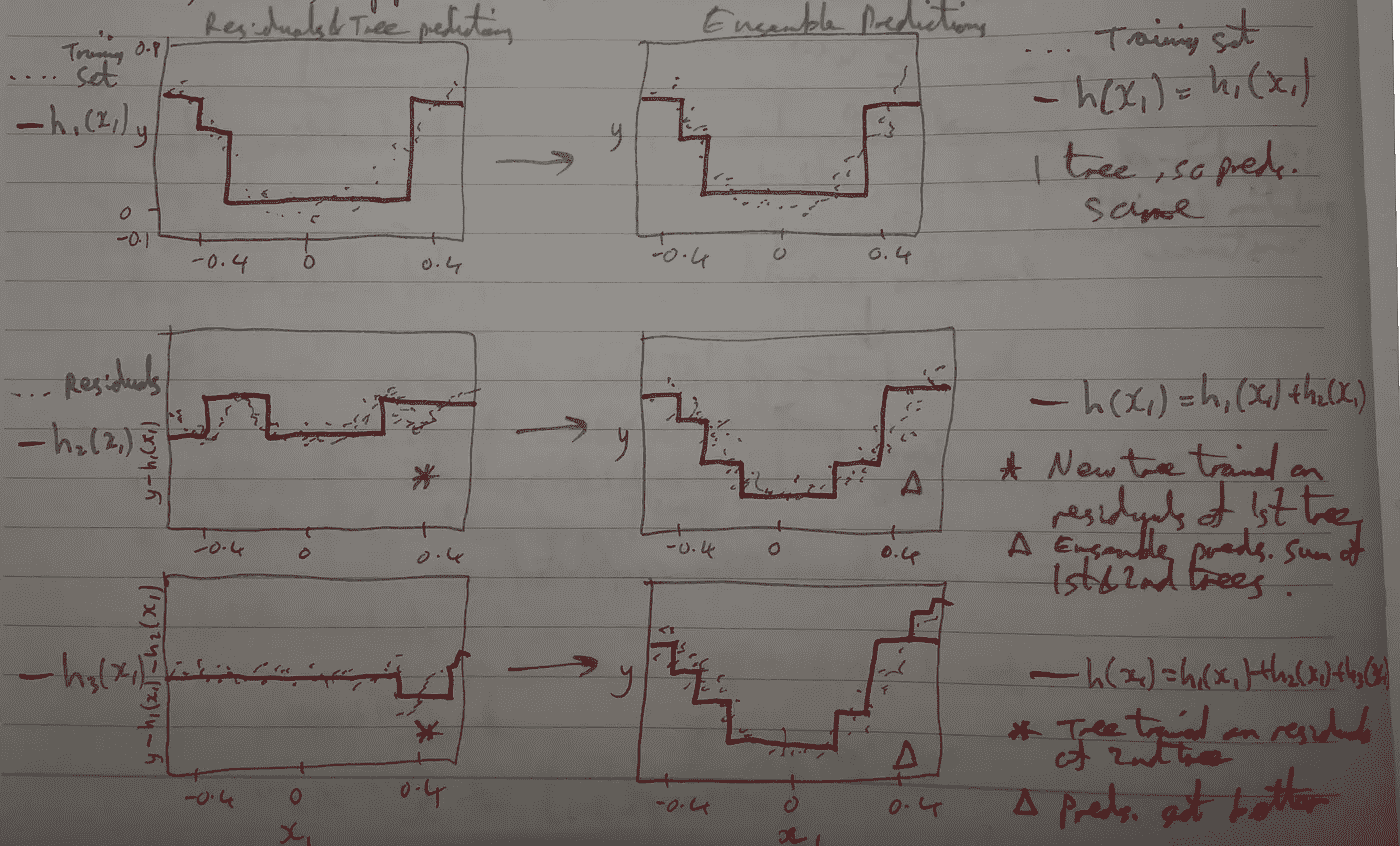 Residuals & Tree predictions
Ensemble Predictions
Training
.... Set
0.8
— h₁(x₁)
y
0
-0.1
-0.4 0 0.4
y
-0.4 0 0.4
.... Training set
— h(x₁) = h₁(x₁)
1 tree, so preds.
same
... Residuals
— h₂(x₁)
y - h₁(x₁)
-0.4 0 0.4
*
y
Δ
-0.4 0 0.4
— h(x₁) = h₁(x₁) + h₂(x₁)
* New tree trained on
residuals of 1st tree
Δ Ensemble preds. sum of
1st & 2nd trees.
— h₃(x₁)
y - h₁(x₁) - h₂(x₁)
*
-0.4 0 0.4
x₁
y
Δ
-0.4 0 0.4
x₁
— h(x₁) = h₁(x₁) + h₂(x₁) + h₃(x₁)
* Tree trained on residuals
of 2nd tree
Δ preds. get better